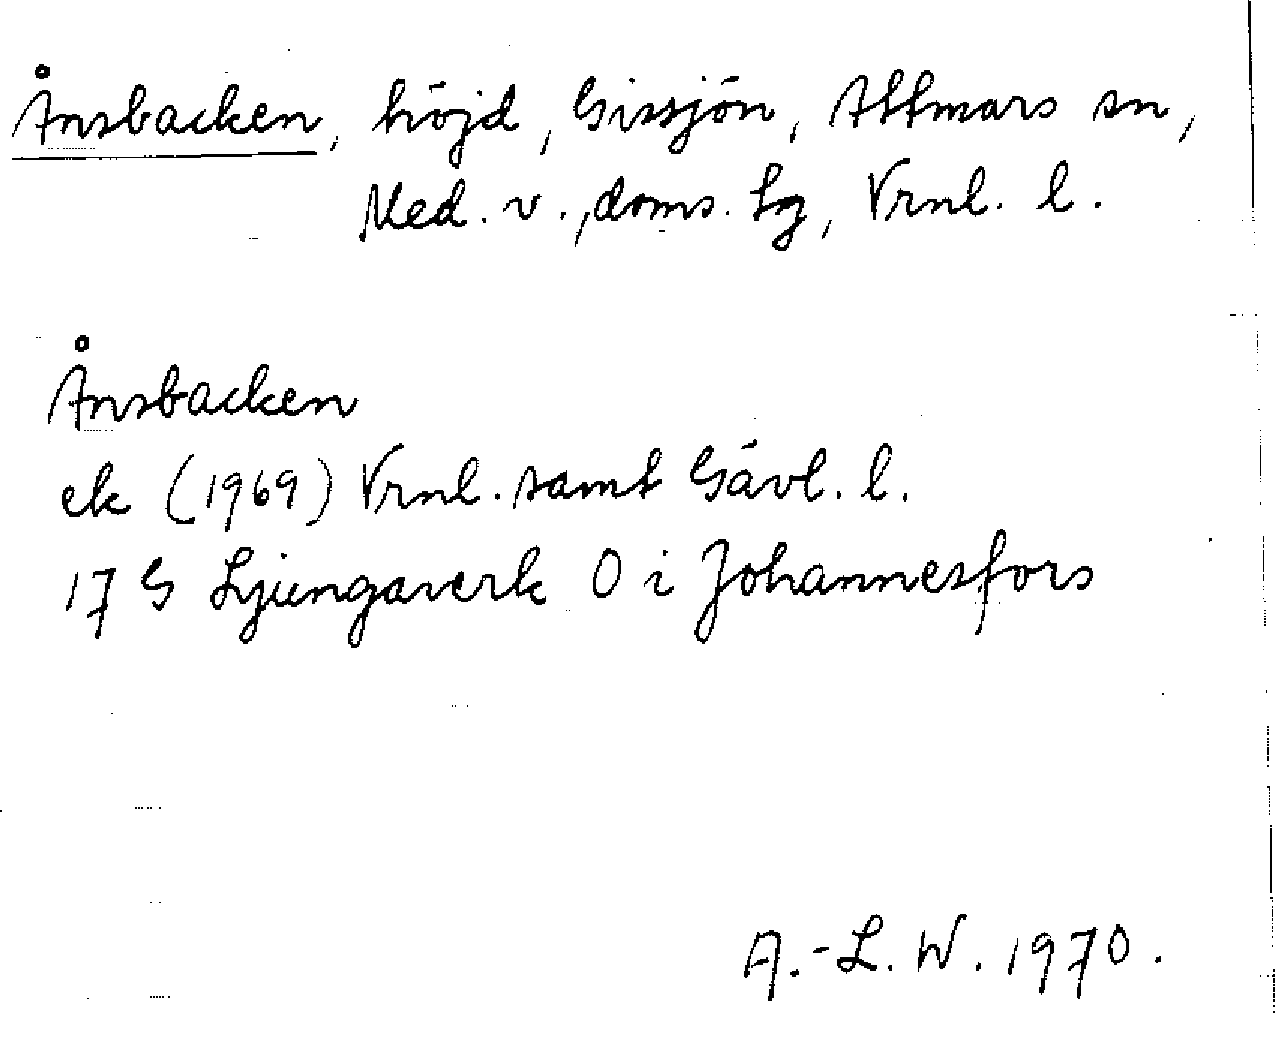 Ånsbacken, höjd, Gissjön, Attmars sn,
Med. v., doms. lg, Vrnl. l.
Ånsbacken
ek (1969) Vrnl. samt Gävl. l.
17 G Ljungaverk O i Johannesfors
A.-L. W. 1970.